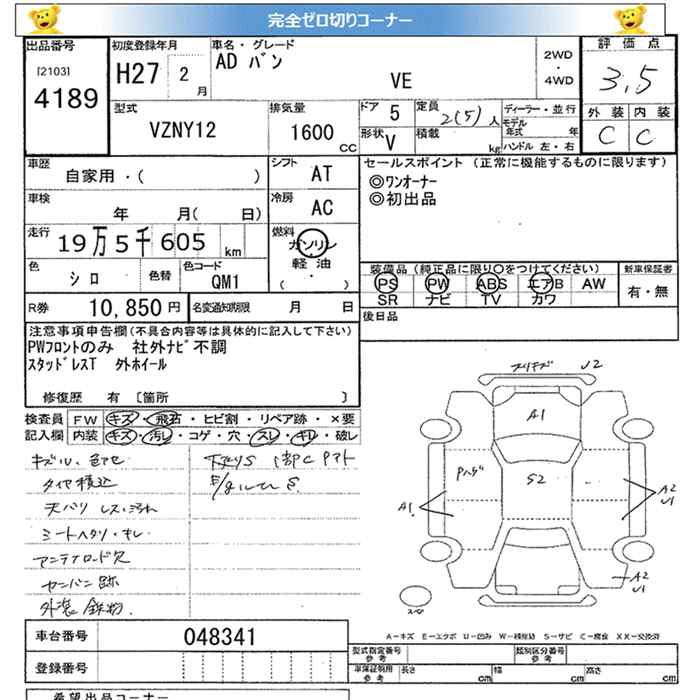 完全ゼロ切りコーナー
出品番号
[2103]
4189
初度登録年月
H27 2 月
車名・グレード
AD バン
VE
2WD
・
4WD
評価点
3.5
外装 内装
C C
型式
VZNY12
排気量
1600 CC
ドア 5
形状 V
定員 2(5) 人
積載 kg
ディーラー・並行
モデル年式 年
ハンドル 左・右
車歴
自家用・( )
車検
年 月( 日)
走行
19万5千605 km
色
シロ
色替
色コード
QM1
シフト
AT
冷房
AC
燃料
ガソリン
軽油
・
( )
セールスポイント (正常に機能するものに限ります)
◎ワンオーナー
◎初出品
装備品 (純正品に限り〇をつけてください)
PS PW ABS エアB AW
SR ナビ TV カワ
新車保証書
有・無
R券 10,850 円
名変通知期限 月 日
後日品
注意事項申告欄(不具合内容等は具体的に記入して下さい)
PWフロントのみ 社外ナビ不調
スタッドレスT 外ホイール
修復歴 有 [箇所 ]
検査員 FW キズ・飛石・ヒビ割・リペア跡・×要
記入欄 内装 キズ・汚レ・コゲ・穴・スレ・キレ・破レ
キズル、色アセ
タイヤ積込
天バリ レス・ヨゴレ
シートヘタリ・キレ
アンテナロッド欠
カンバン跡
下廻りS
U2
A1
Pハゲ
S2
A1
A2
U1
A2
U1
A−キズ E−エクボ U−凹み W−補修跡 S−サビ C−腐食 XX−交換済
車台番号 048341
登録番号
型式指定番号
参考
類別区分番号
参考
車庫証明用
参考
長さ cm
幅 cm
高さ cm
希望出品コーナー